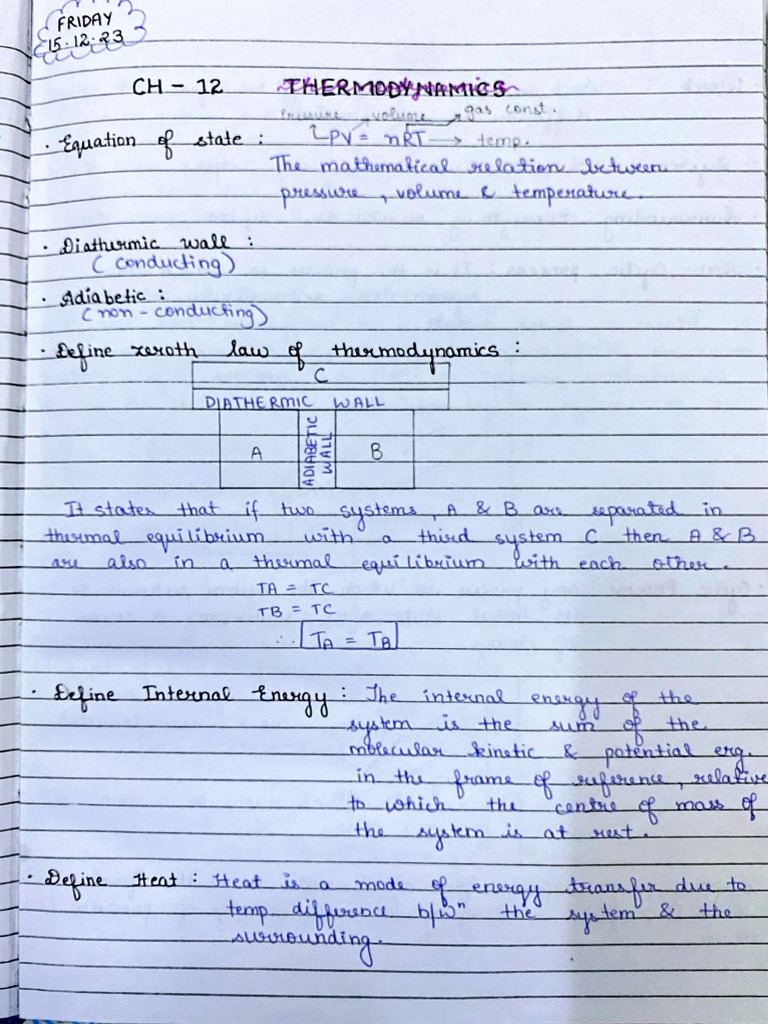 FRIDAY
15.12.23
CH - 12 THERMODYNAMICS
pressure volume gas const.
• Equation of state : PV = nRT → temp.
The mathematical relation between
pressure, volume & temperature.
• Diathermic wall :
(conducting)
• Adiabetic :
(non-conducting)
• Define zeroth law of thermodynamics :
C
DIATHERMIC WALL
A
ADIABETIC WALL
B
It states that if two systems, A & B are separated in
thermal equilibrium with a third system C then A & B
are also in a thermal equilibrium with each other.
TA = TC
TB = TC
∴ TA = TB
• Define Internal Energy : The internal energy of the
system is the sum of the
molecular kinetic & potential erg.
in the frame of reference, relative
to which the centre of mass of
the system is at rest.
• Define Heat : Heat is a mode of energy transfer due to
temp. difference b/wⁿ the system & the
surrounding.